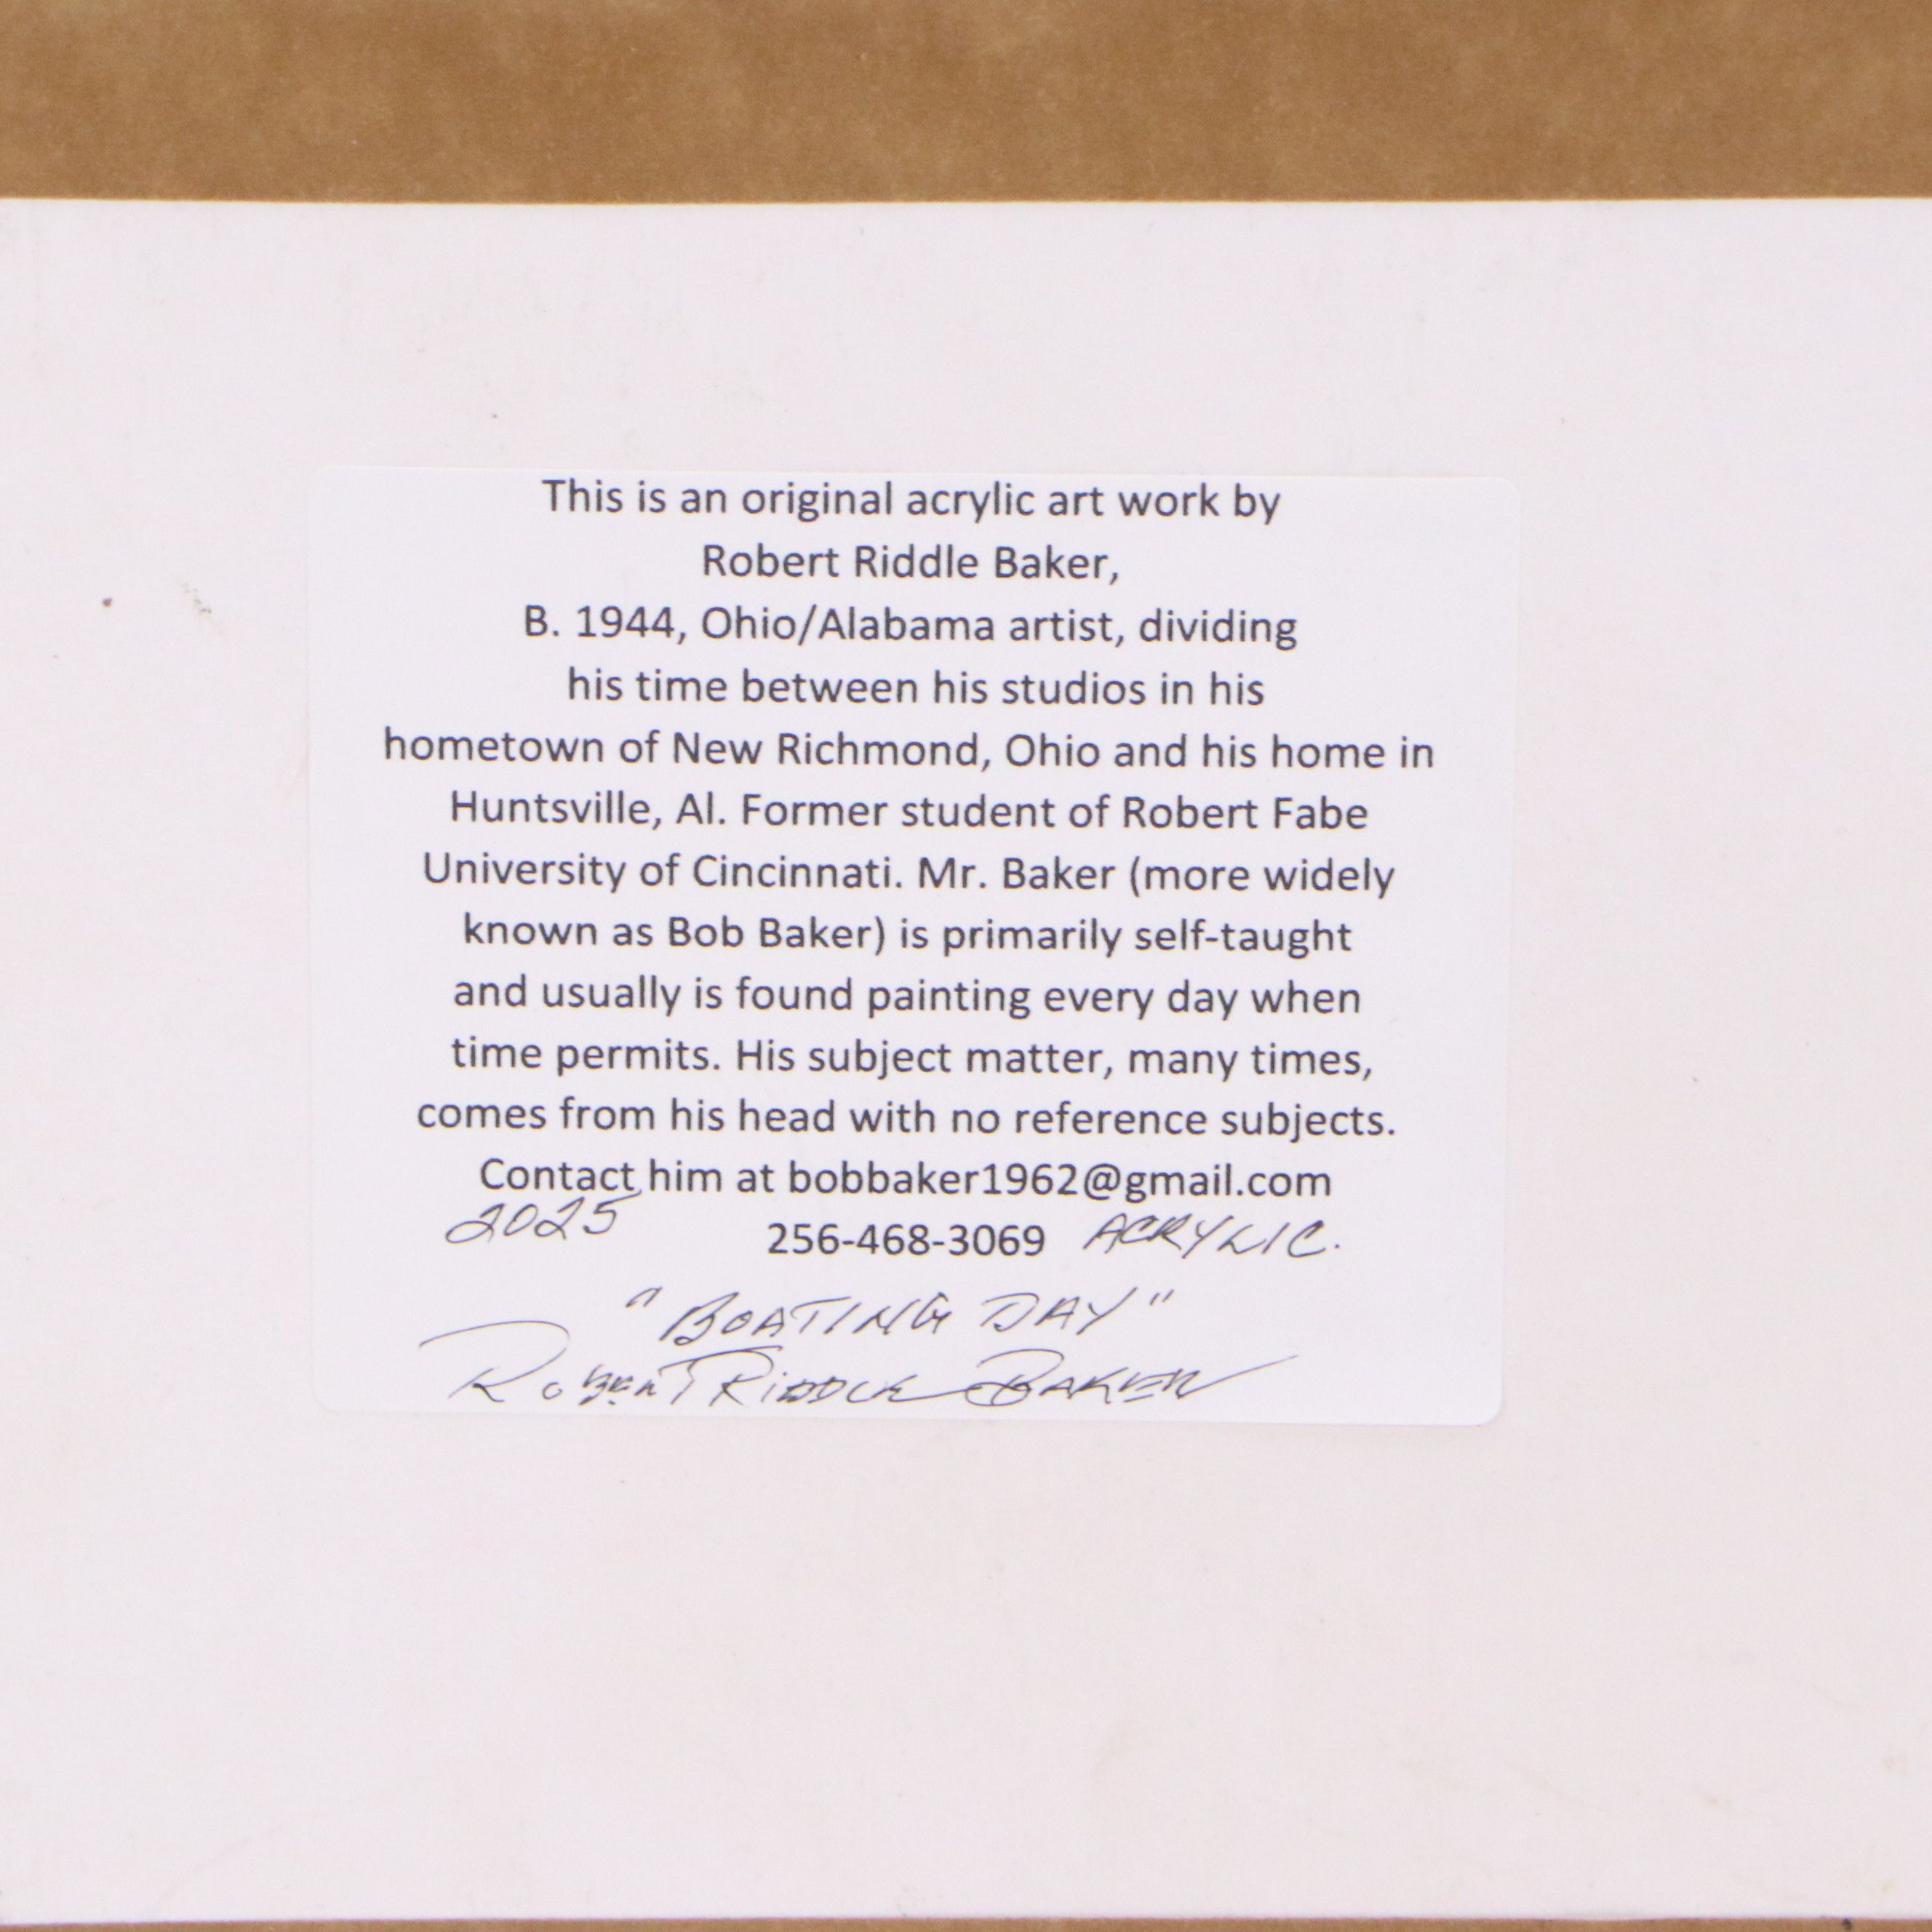 This is an original acrylic art work by
Robert Riddle Baker,
B. 1944, Ohio/Alabama artist, dividing
his time between his studios in his
hometown of New Richmond, Ohio and his home in
Huntsville, Al. Former student of Robert Fabe
University of Cincinnati. Mr. Baker (more widely
known as Bob Baker) is primarily self-taught
and usually is found painting every day when
time permits. His subject matter, many times,
comes from his head with no reference subjects.
Contact him at bobbaker1962@gmail.com
2025 256-468-3069 ACRYLIC.
"BOATING DAY"
Robert Riddle Baker